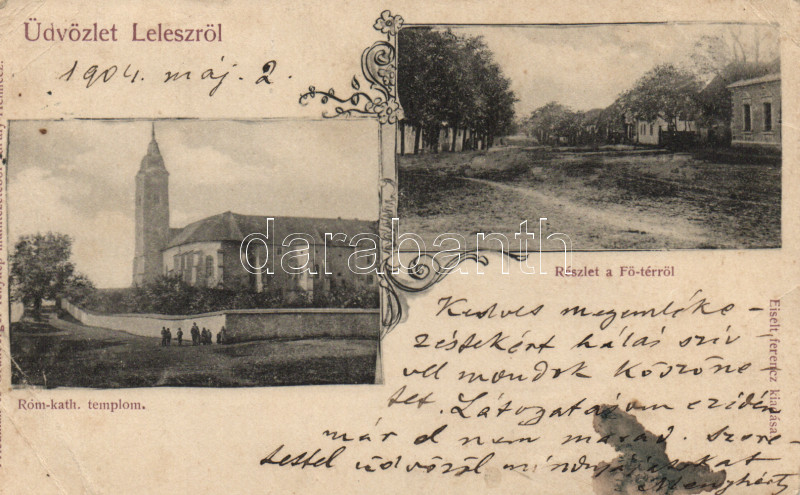 Üdvözlet Leleszről
1904. máj. 2.
Részlet a Fő-térről
Róm-kath. templom.
Eiselt ferencz kiadása
Kedves megemléke-
zéstekért hálás szív
vel mondok köszöne-
tet. Látogatásom ezidén
már el nem marad. Szere-
tettel üdvözöl mindnyájatokat
Menyhért
darabanth.com